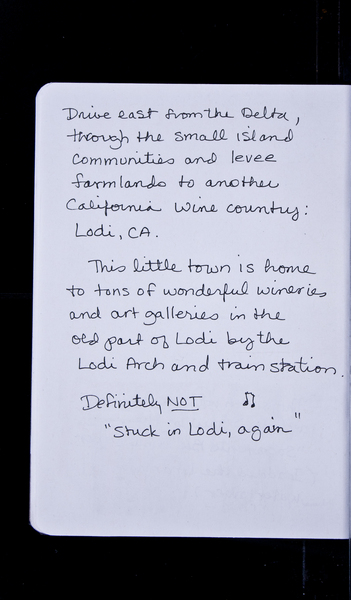 Drive east from the Delta,
through the small island
communities and levee
farmlands to another
California wine country:
Lodi, CA.
This little town is home
to tons of wonderful wineries
and art galleries in the
old part of Lodi by the
Lodi Arch and train station.
Definitely NOT ♫
"Stuck in Lodi, again"